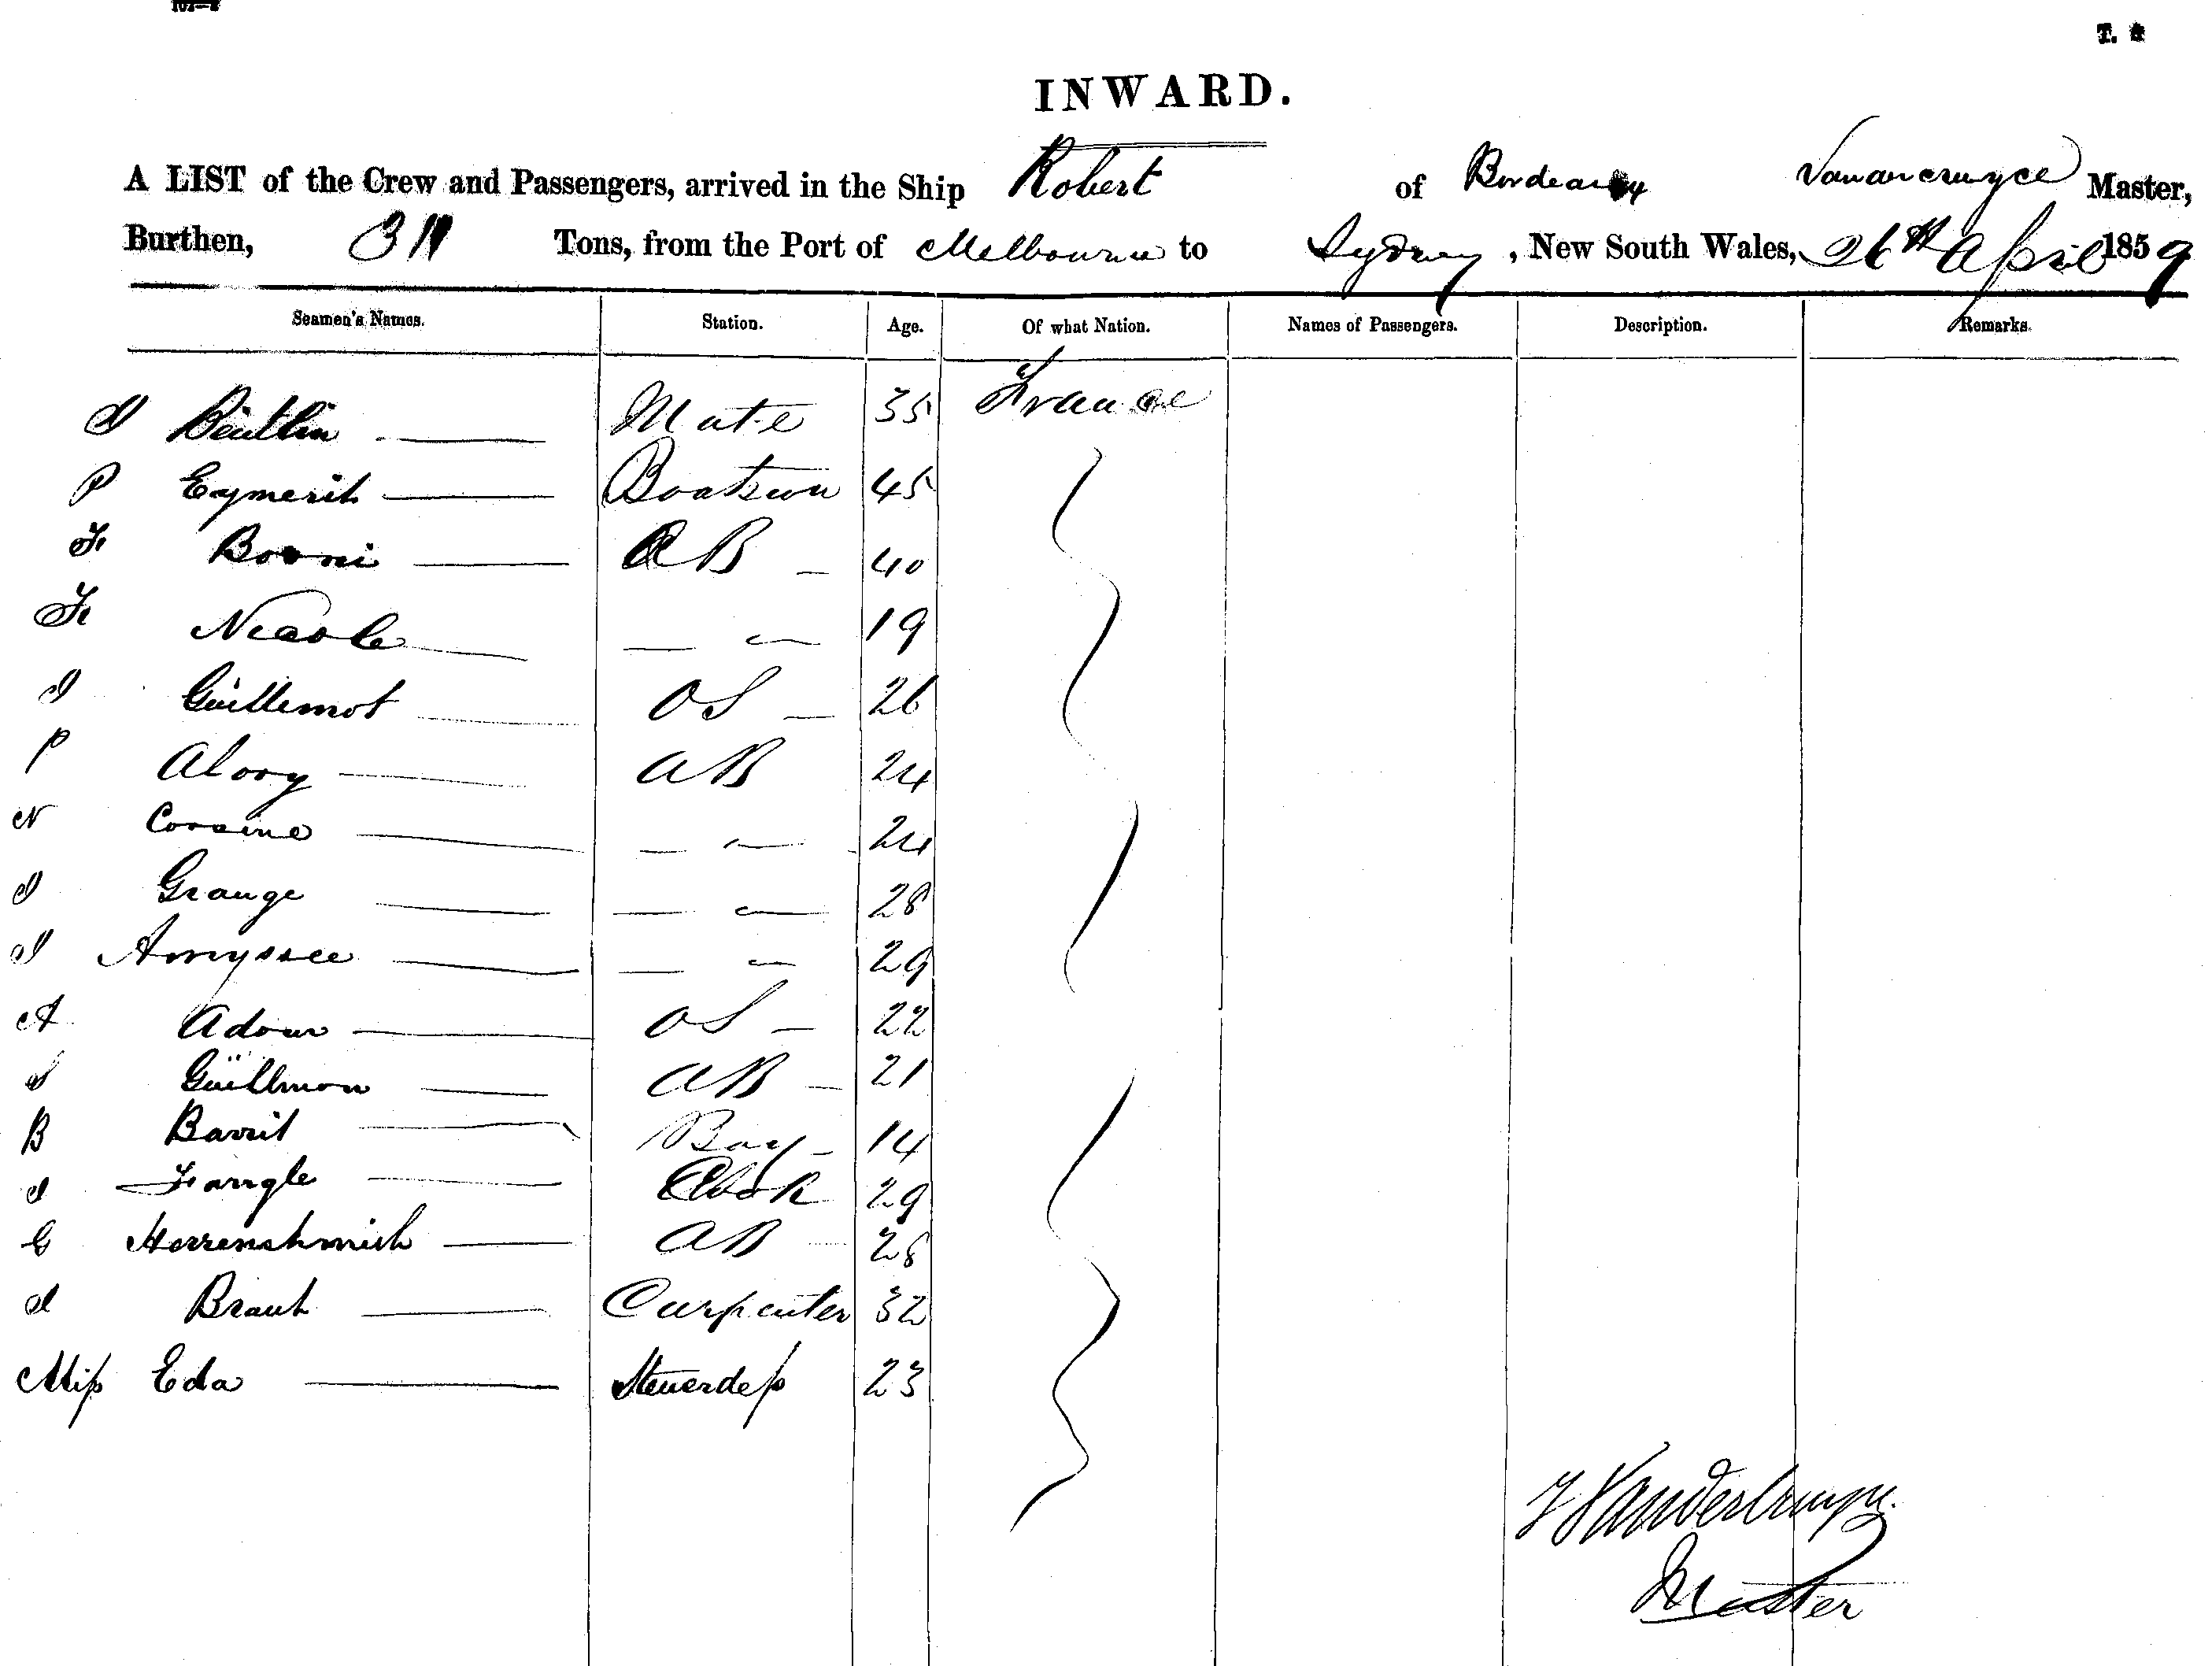 INWARD.
A LIST of the Crew and Passengers, arrived in the Ship Robert of Bordeaux Vanancruyce Master,
Burthen, 311 Tons, from the Port of Melbourne to Sydney, New South Wales, 26th April 1859
Seamen's Names. Station. Age. Of what Nation. Names of Passengers. Description. Remarks.
J Beutlin Mate 35 France
P Eymerit Boatswn 45
Fr Bonni AB 40
Fr Nicole — — 19
J Guillemot OS 26
P Alory AB 24
N Corsine — — 24
J Grange — — 28
J Amyssee — — 29
A Adour OS 22
S Guillmon AB 21
B Barrit Boy 14
J Farrgle Cook 29
G Herrenshmith AB 28
J Braut Carpenter 32
Miſs Eda Stewerdeſs 23
J Vandercruyce
Master